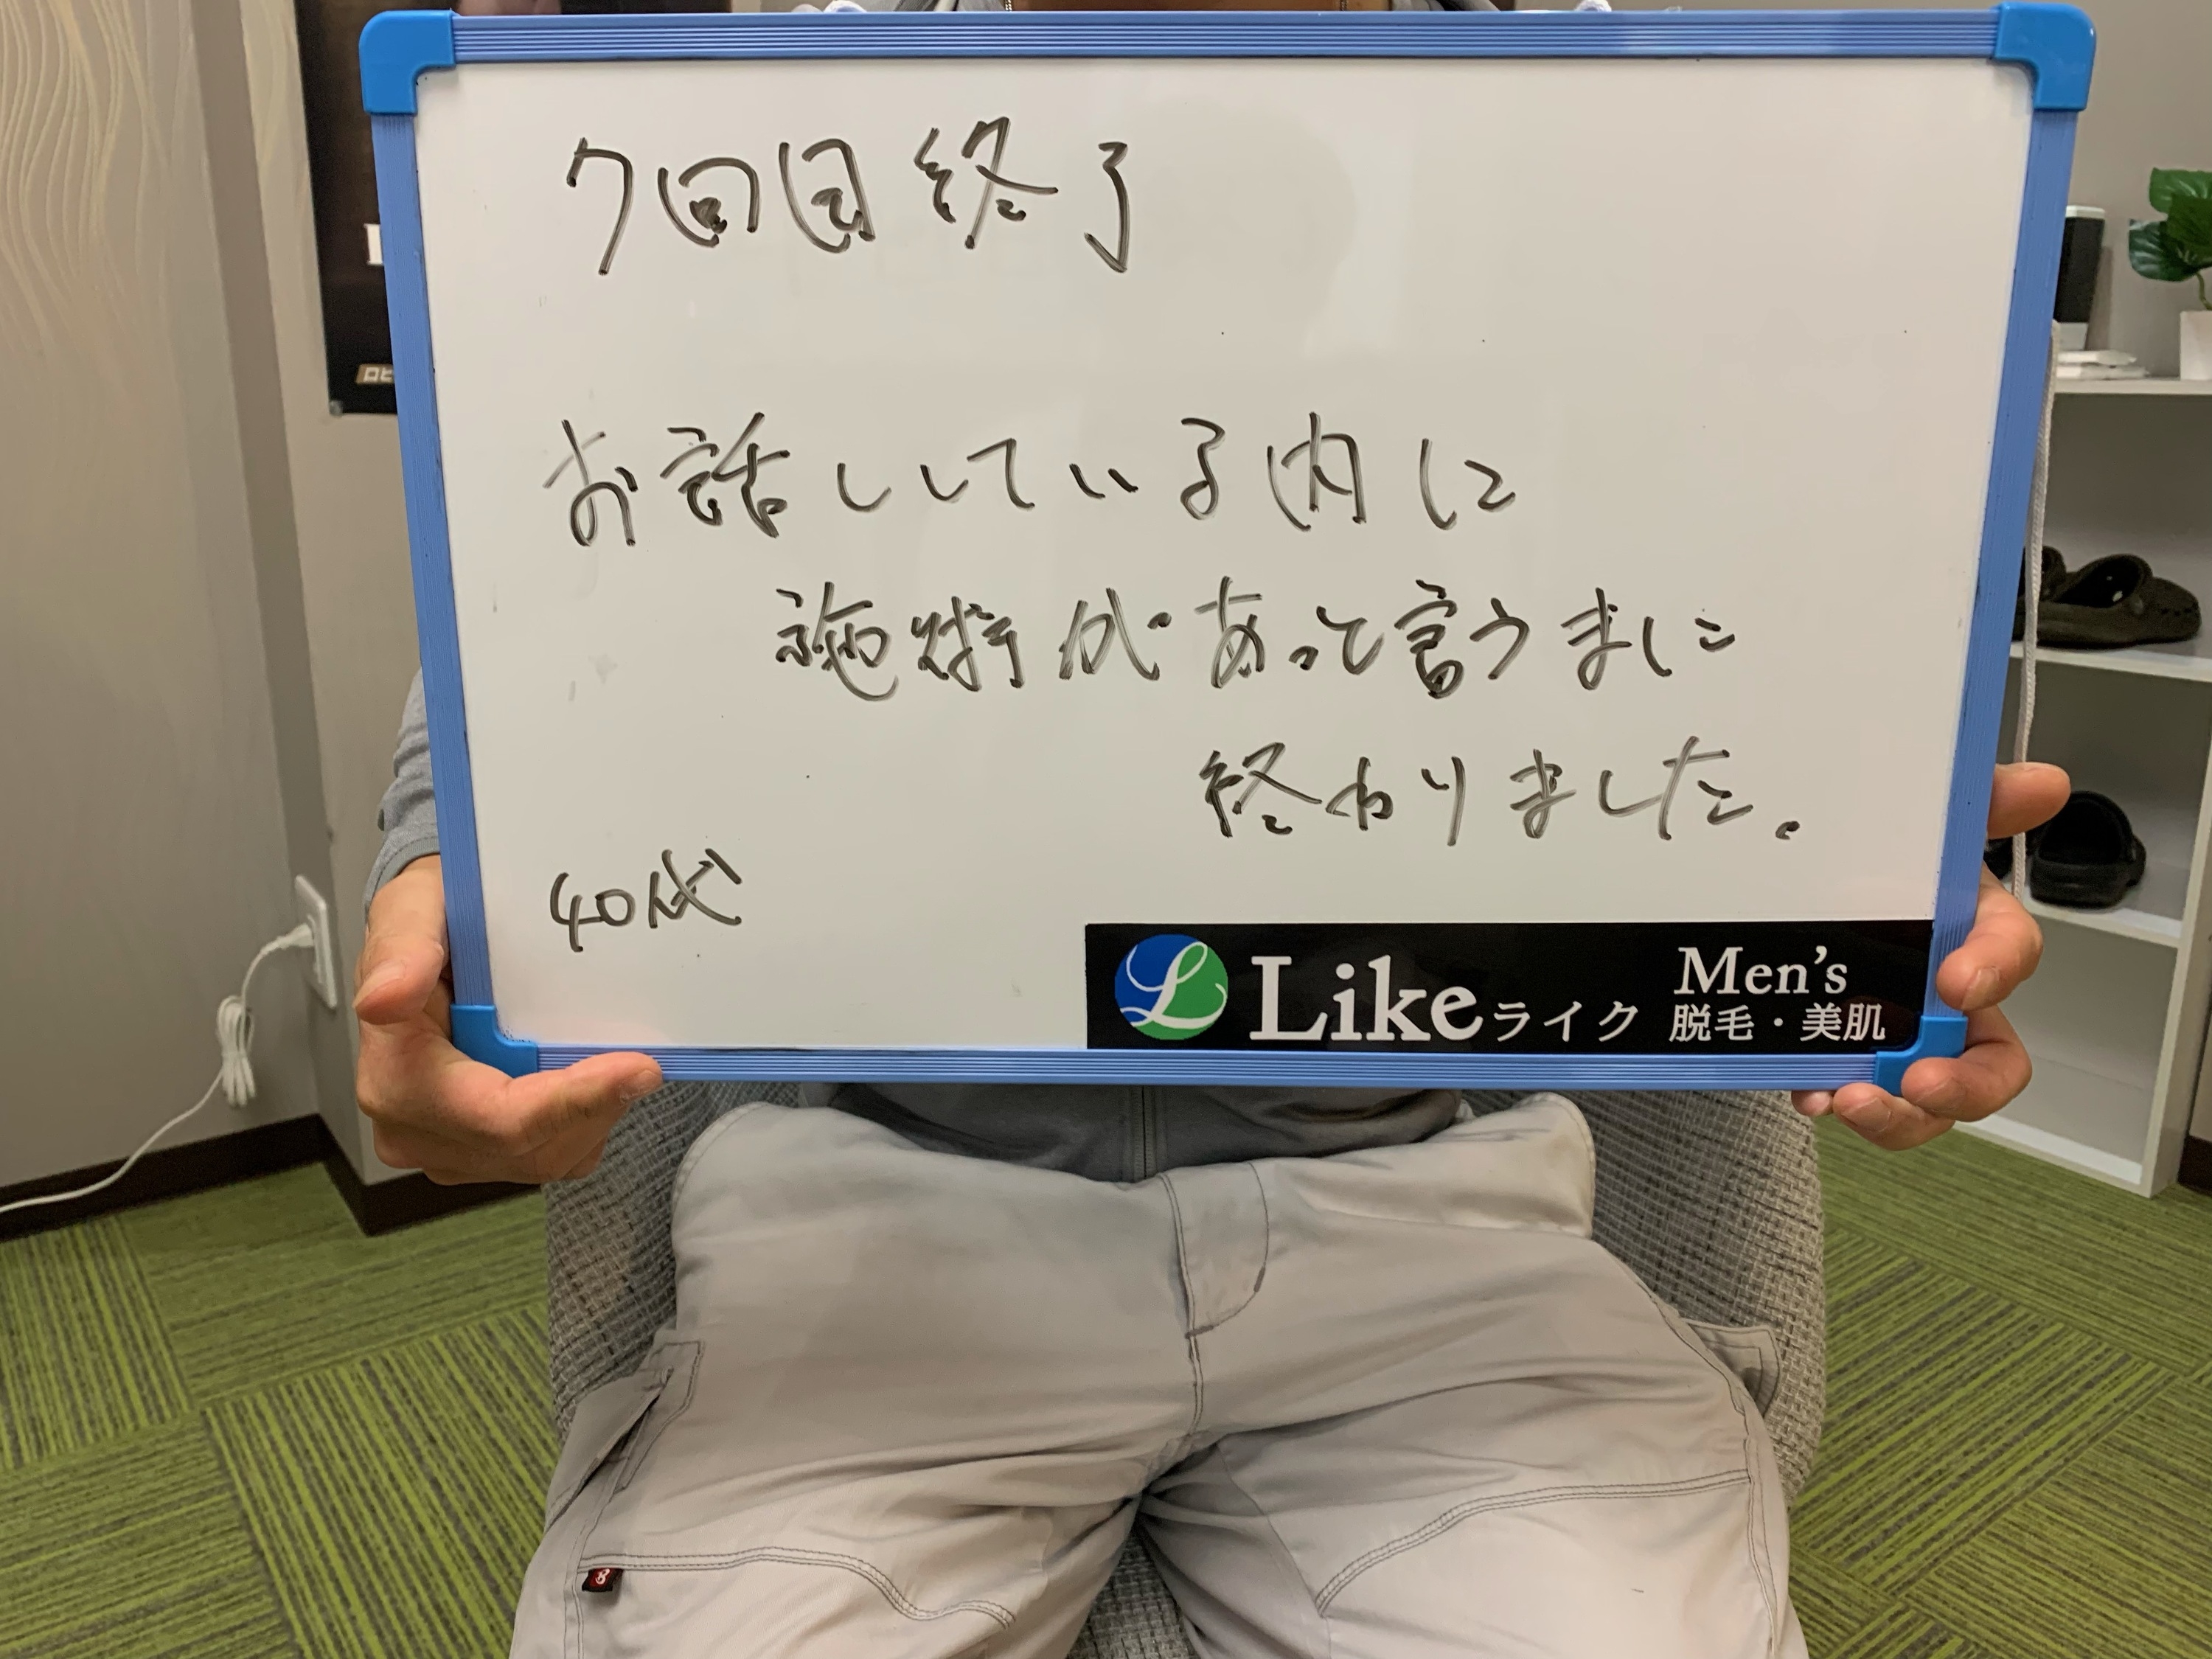 7回目終了
お話ししている内に
施術があっと言うまに
終わりました。
40代
Likeライク
Men's
脱毛・美肌